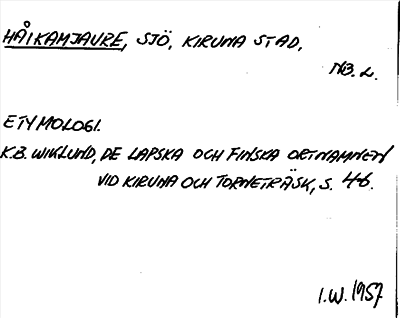 HÅIKAMJAURE, SJÖ, KIRUNA STAD,
NB. L.
ETYMOLOGI.
K.B. WIKLUND, DE LAPSKA OCH FINSKA ORTNAMNEN
VID KIRUNA OCH TORNETRÄSK, S. 46.
I.W. 1957